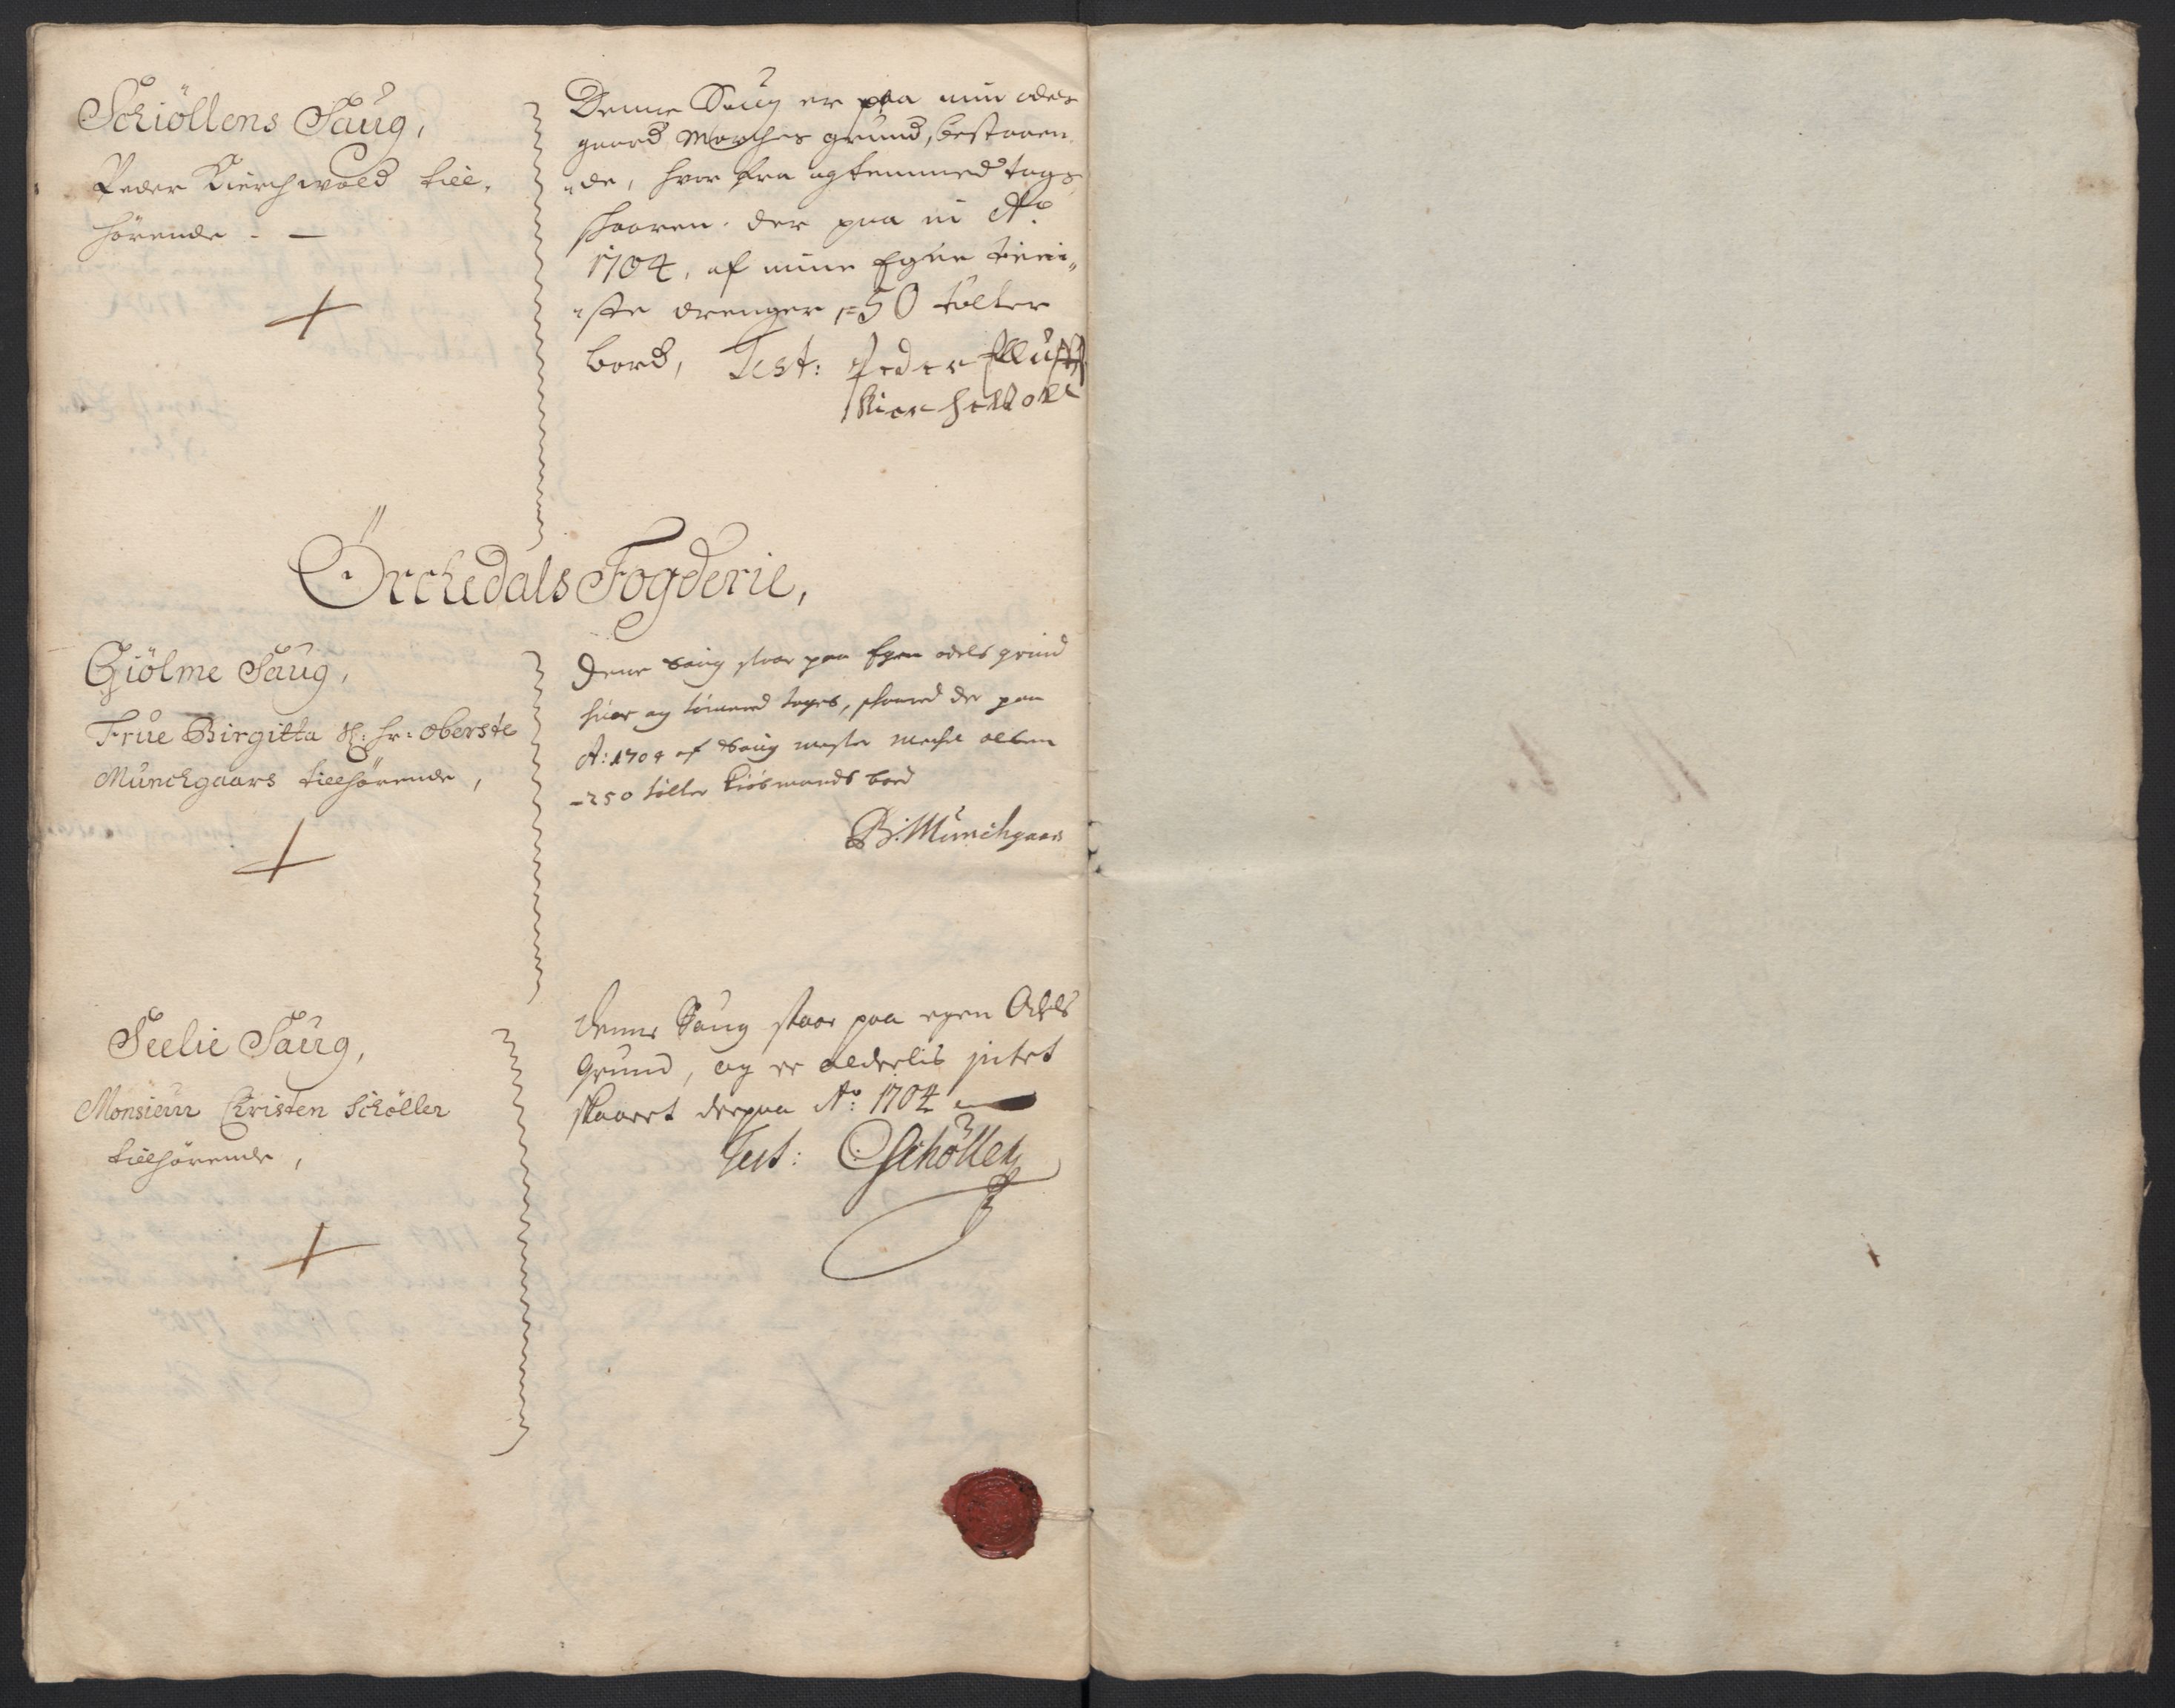 Schiöllens Saug,
Peder Kierchwold till,
hörende. —
Denne Saug er paa min odels
gaard Marches grund, bestaaen
„de, hvor fra og temmed tags
skaaren der paa in Aº
1704, af mine Egne tieni„
„ste drenger, 50 tolter
bord, Test: Peder
Kierchwold
Örchedals Fogderie,
Giölme Saug,
Frue Birgitta Sl: hr: Oberste
Münchgaars tillhörende,
Dene Saug staar paa Egen odels grund
huor og tömmed tages, skaared der paa
A: 1704 af Saug mester olsen
-250 tolter kiöbmands bord
B: Münchgaars
Seelie Saug,
Monsieur Christen Schöller
tillhörende,
Denne Saug staar paa egen Odels
Grund, og er alderlis intet
skaaret derpaa Aº: 1704
Test: CSchöller